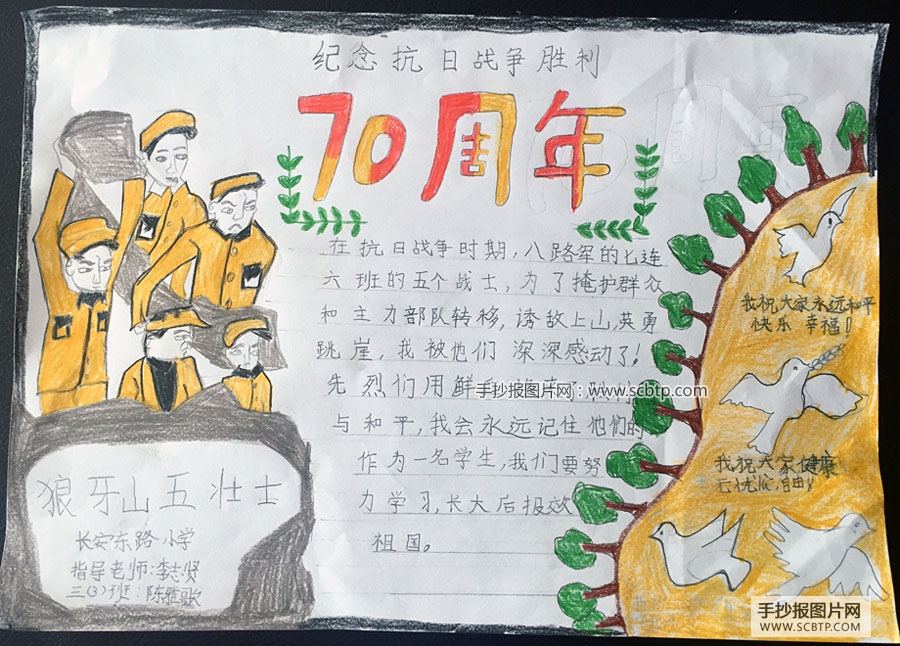 纪念抗日战争胜利
70周年
在抗日战争时期,八路军的七连
六班的五个战士,为了掩护群众
和主力部队转移,诱敌上山,英勇
跳崖,我被他们深深感动了!
先烈们用鲜
与和平,我会永远记住他们的
作为一名学生,我们要努
力学习,长大后报效
祖国。
手抄报图片网:www.scbtp.com
狼牙山五壮士
长安东路小学
指导老师:李志贤
三(3)班:陈雅歌
我祝大家永远和平
快乐 幸福!
我祝大家健康
无忧,自由!
手抄报图片网
WWW.SCBTP.COM